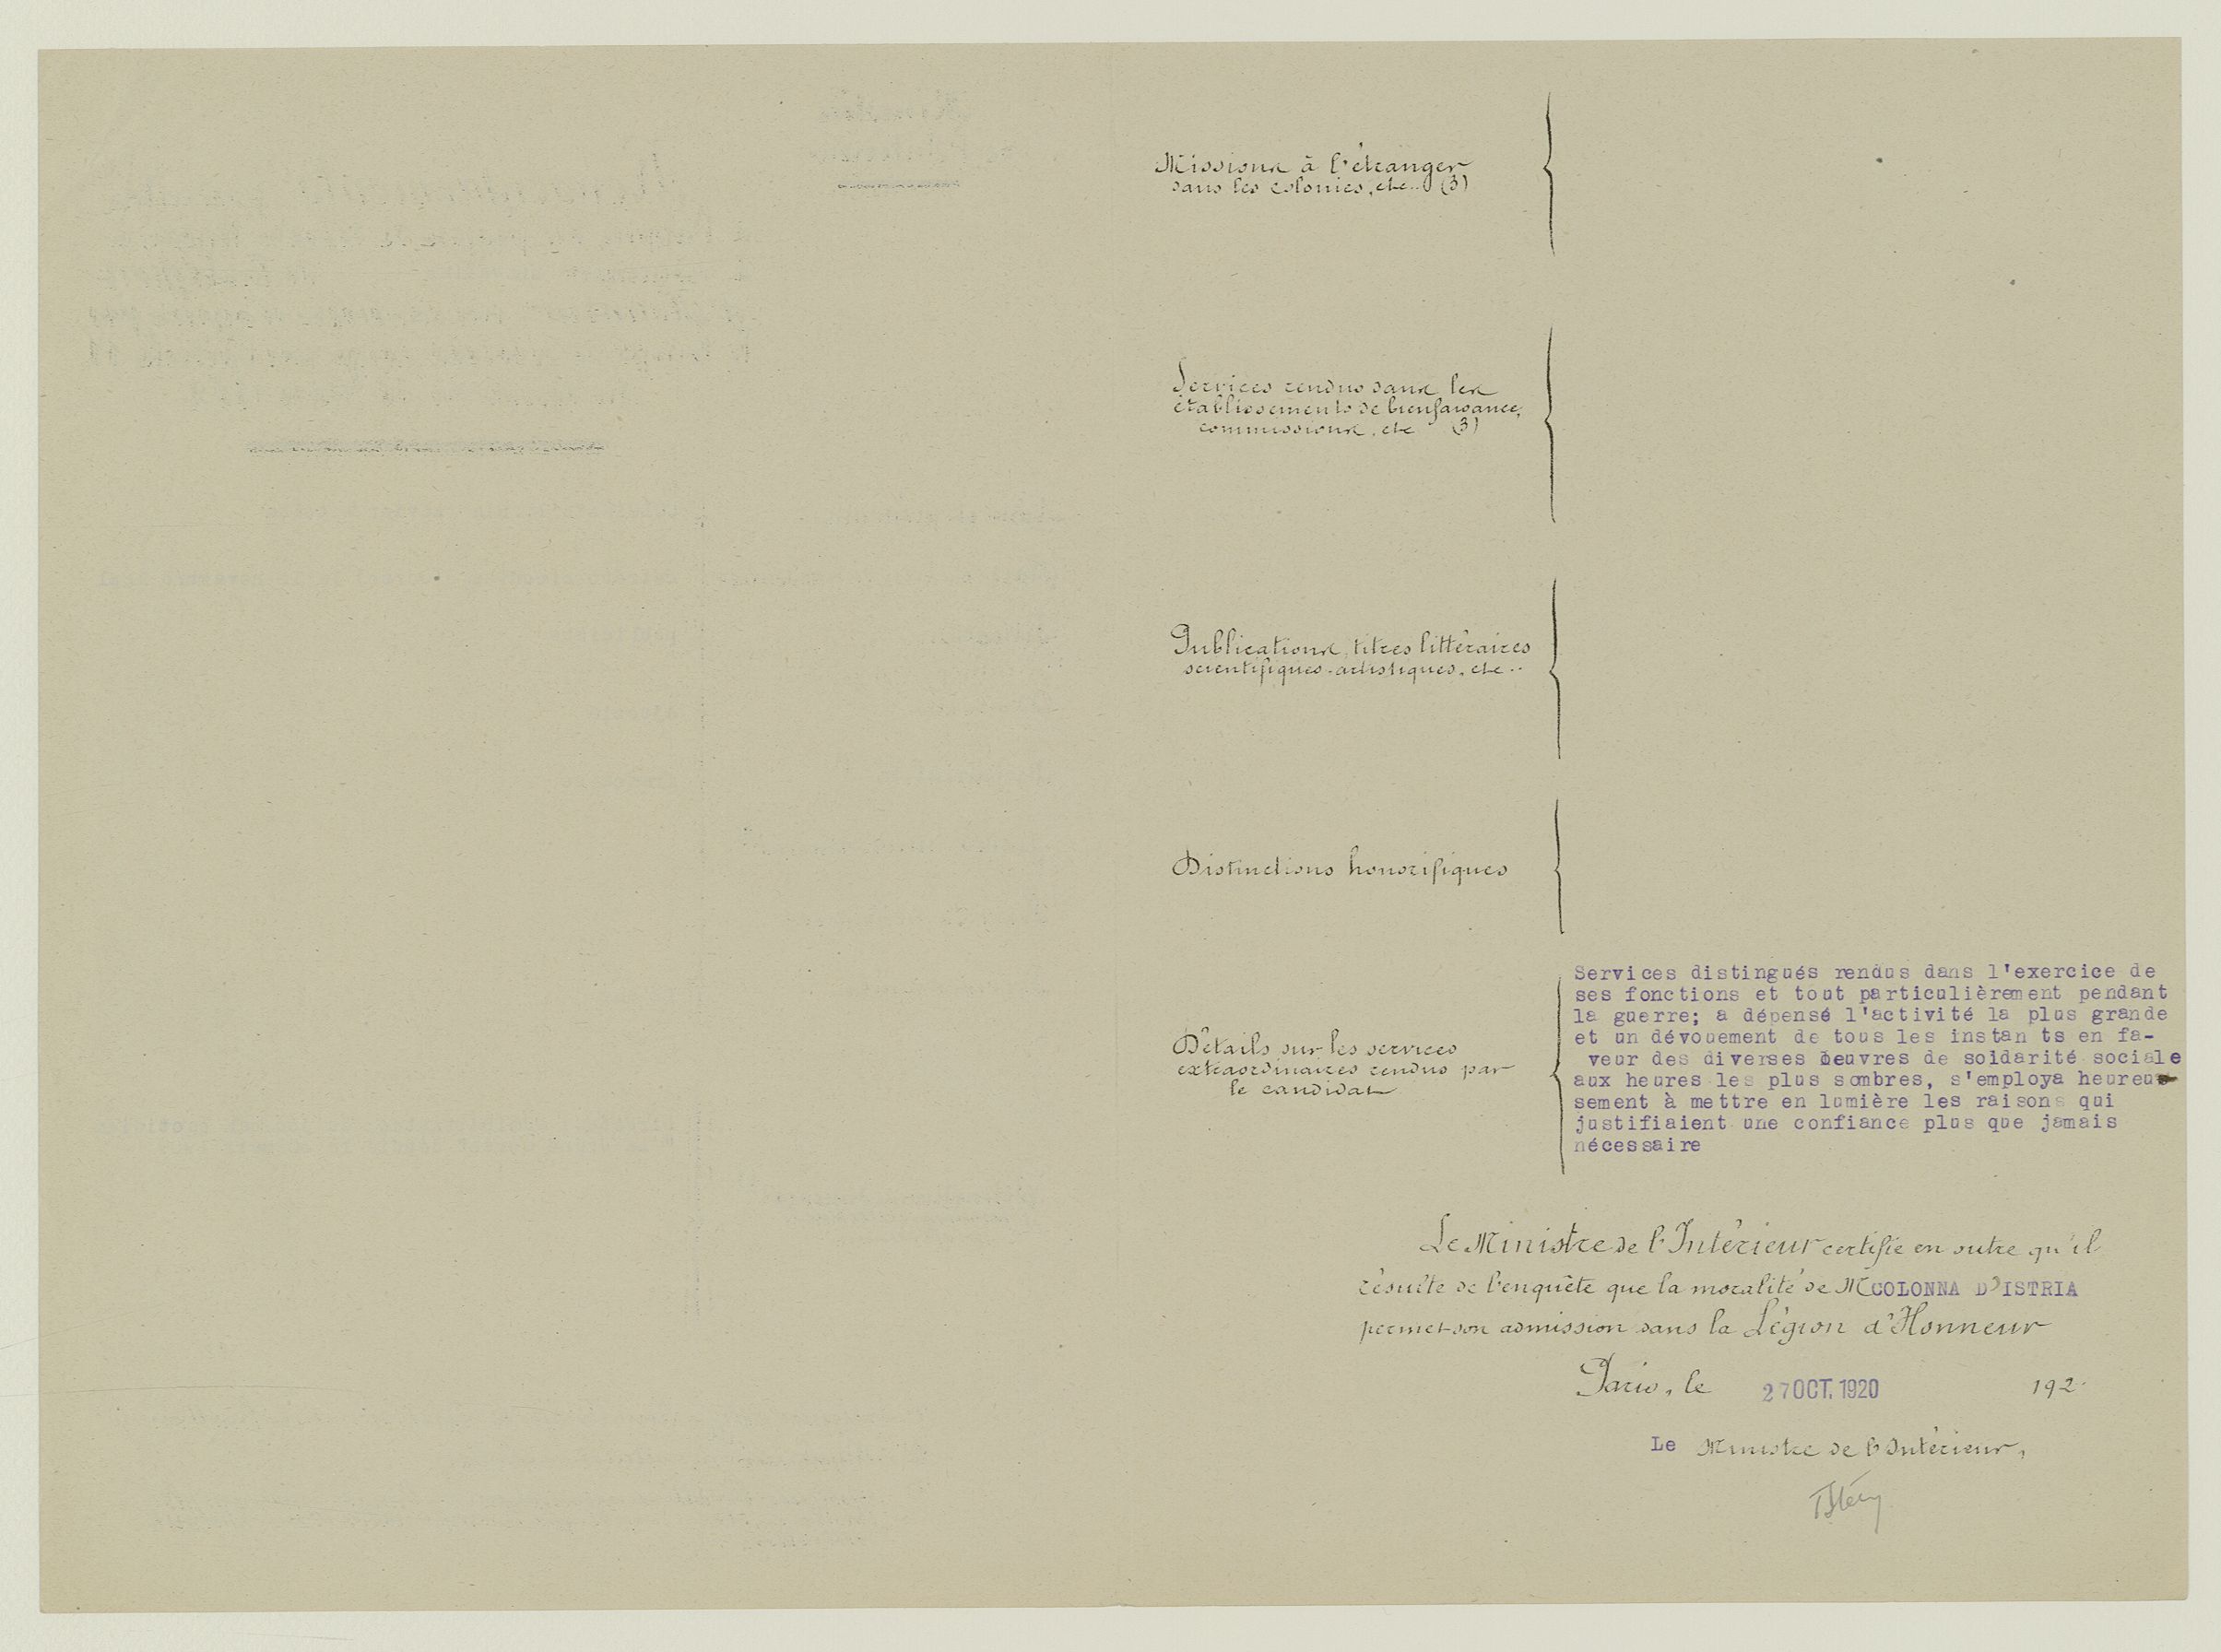 Missions à l'étranger
dans les colonies, etc... (3)
Services rendus dans les
établissements de bienfaisance,
commissions, etc (3)
Publications, titres littéraires
scientifiques - artistiques, etc...
Distinctions honorifiques
Détails sur les services
extraordinaires rendus par
le candidat
Services distingués rendus dans l'exercice de
ses fonctions et tout particulièrement pendant
la guerre; a dépensé l'activité la plus grande
et un dévouement de tous les instan ts en fa-
veur des diverses oeuvres de soidarité sociale
aux heures les plus sombres, s'employa heureu
sement à mettre en lumière les raisons qui
justifiaient une confiance plus que jamais
nécessaire
Le Ministre de l'Intérieur certifie en outre qu'il
résulte de l'enquête que la moralité de M COLONNA D'ISTRIA
permet son admission dans la Légion d'Honneur
Paris, le 27 OCT. 1920 192
Le Ministre de l'Intérieur,